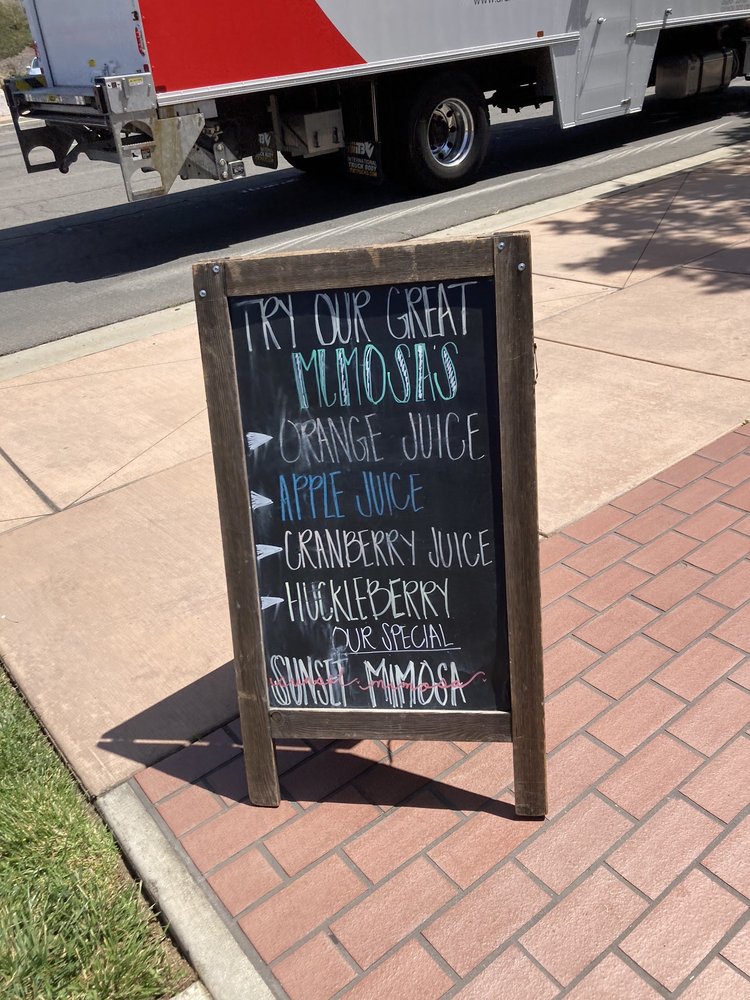 TRY OUR GREAT
MIMOSA'S
ORANGE JUICE
APPLE JUICE
CRANBERRY JUICE
HUCKLEBERRY
OUR SPECIAL
SUNSET MIMOSA
sunset mimosa
INTERNATIONAL
TRUCK BODY